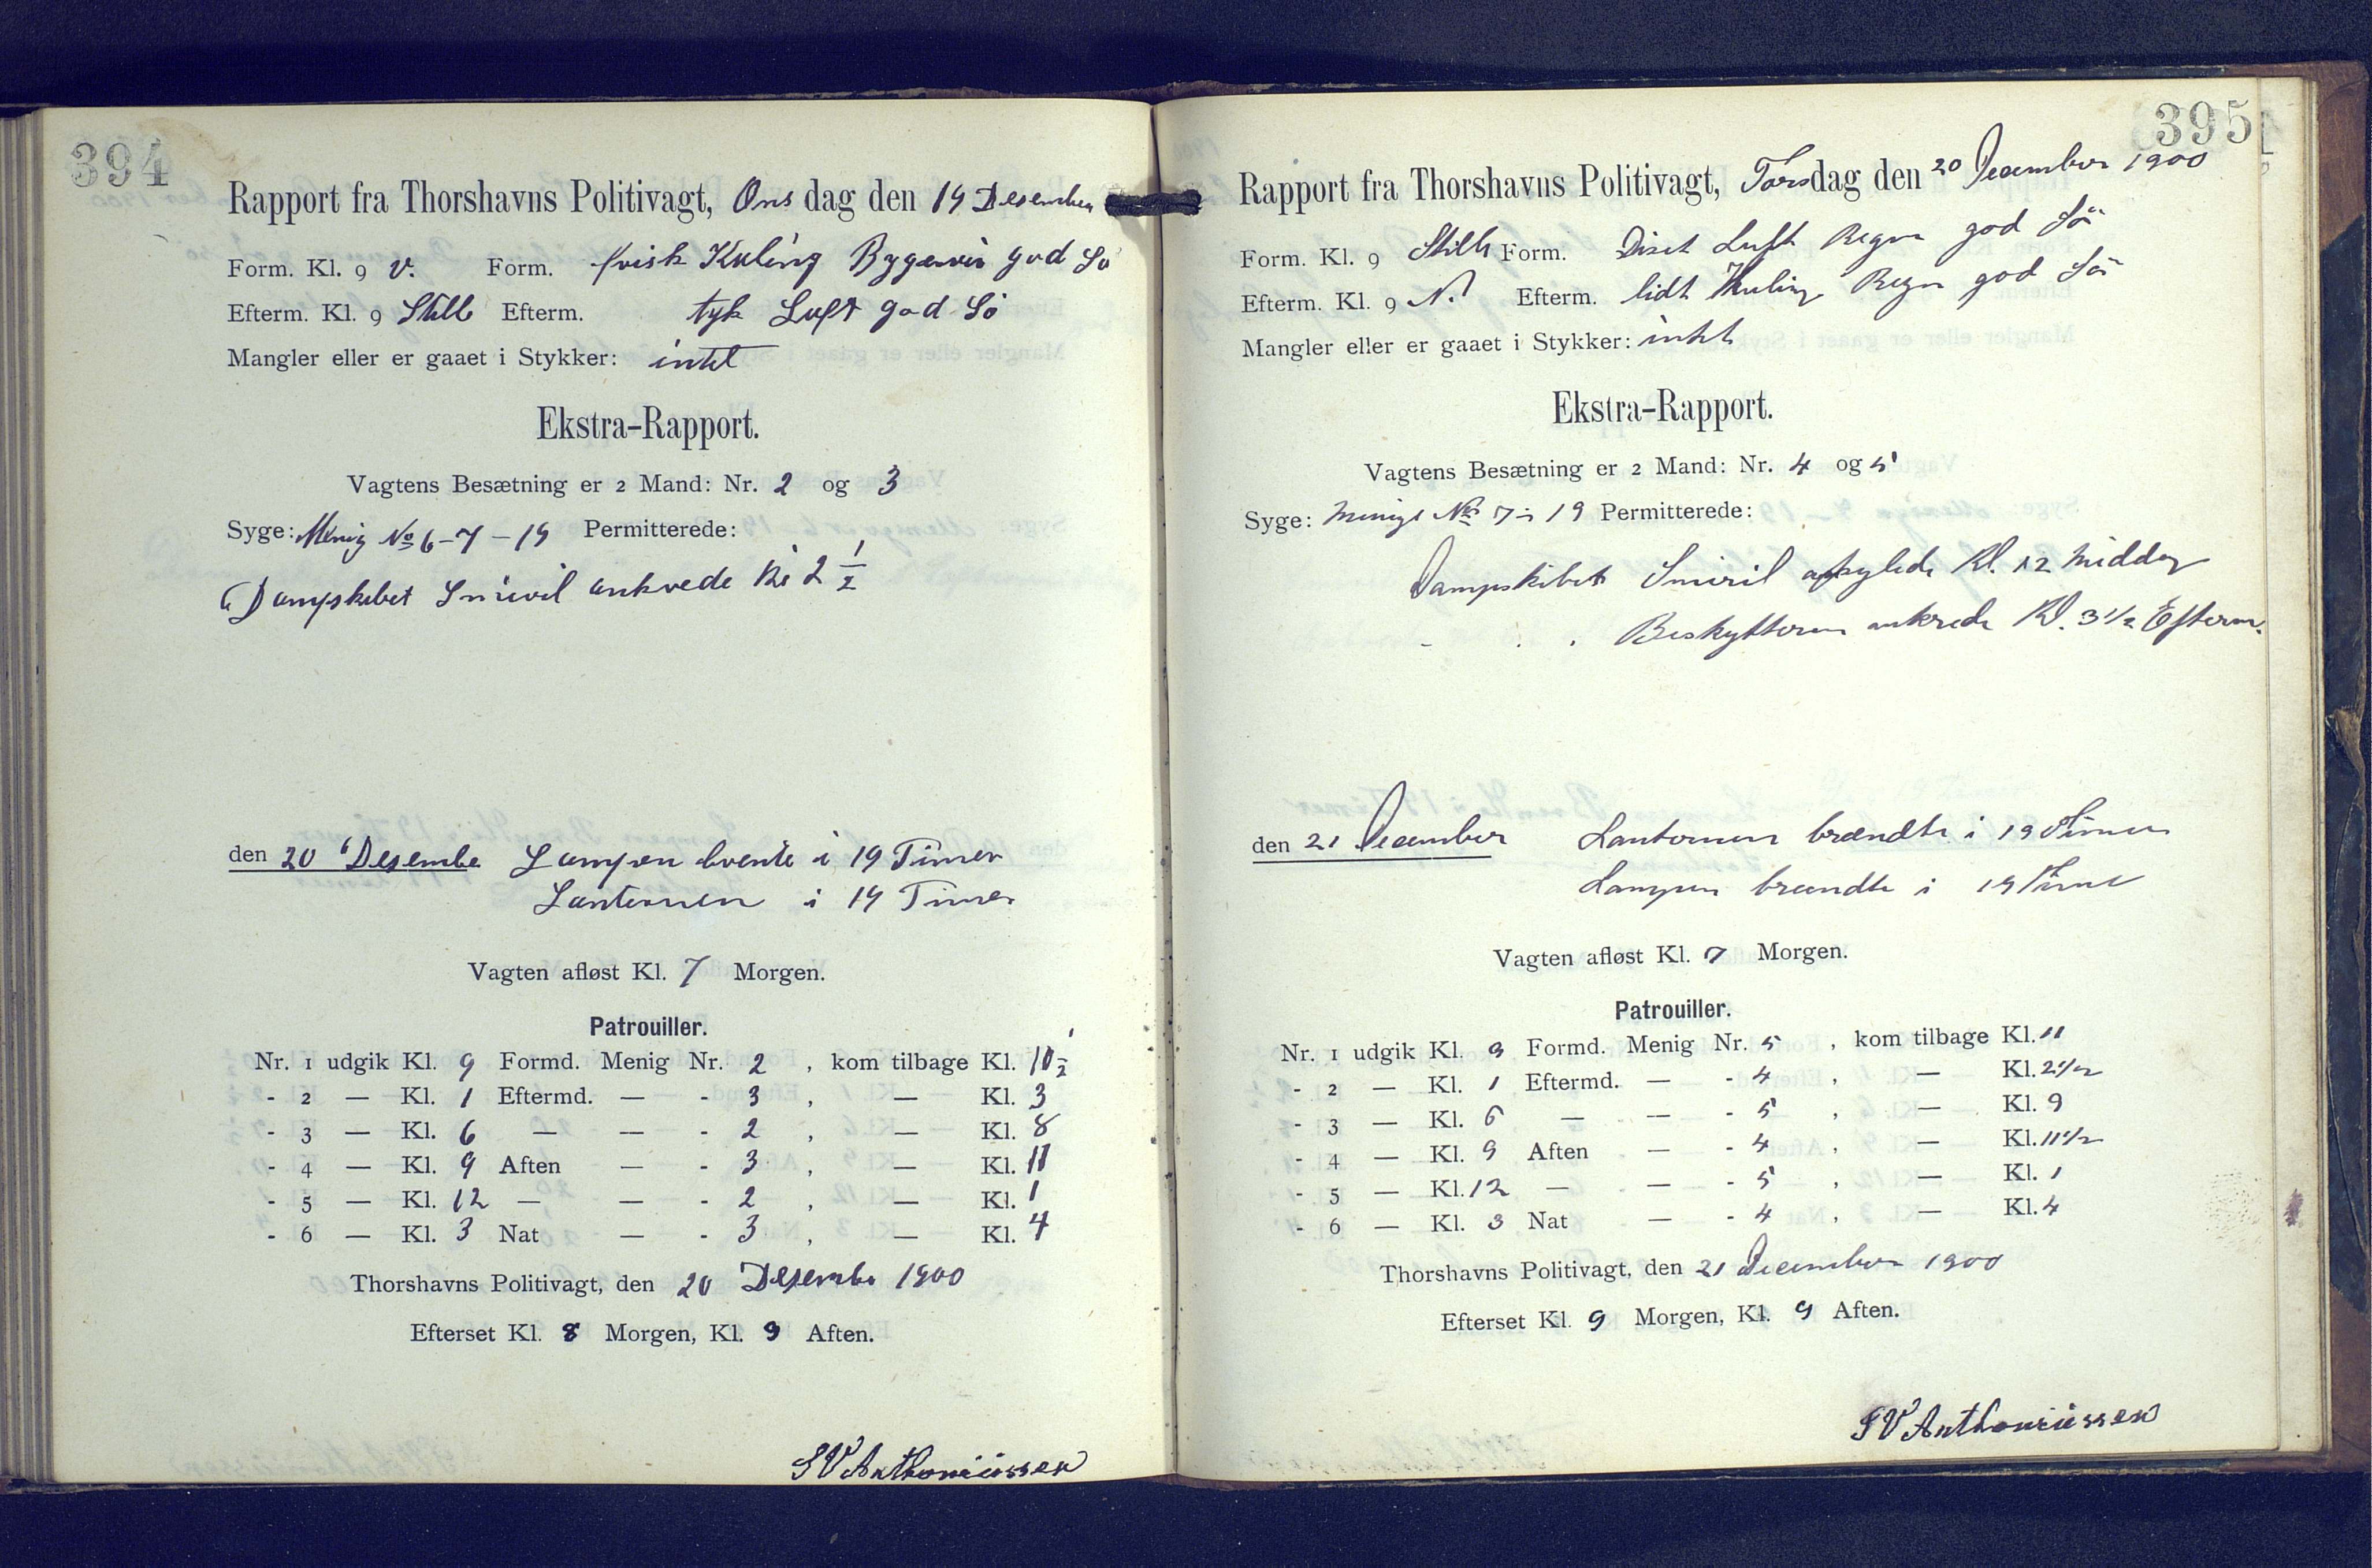 394
Rapport fra Thorshavns Politivagt, Onsdag den 19 Desember
Form. Kl. 9 V. Form. frisk Kuling Bygeveir god Sö
Efterm. Kl. 9 Stille Efterm. tyk Luft god Sö
Mangler eller er gaaet i Stykker: intet
Ekstra-Rapport.
Vagtens Besætning er 2 Mand: Nr. 2 og 3
Syge: Menig No 6-7-19 Permitterede:
Dampskibet Smiril ankrede Kl 2 1/2
den 20 Desembe Lampen brente i 19 Timer
Lanternen i 14 Timer
Vagten afløst Kl. 7 Morgen.
Patrouiller.
Nr. 1 udgik Kl. 9 Formd. Menig Nr. 2 , kom tilbage Kl. 10 1/2
- 2 — Kl. 1 Eftermd. — - 3 , — Kl. 3
- 3 — Kl. 6 — — - 2 , — Kl. 8
- 4 — Kl. 9 Aften — - 3 , — Kl. 11
- 5 — Kl. 12 — — - 2 , — Kl. 1
- 6 — Kl. 3 Nat — - 3 , — Kl. 4
Thorshavns Politivagt, den 20 Desembe 1900
Efterset Kl. 8 Morgen, Kl. 9 Aften.
SVAnthoniussen
395
Rapport fra Thorshavns Politivagt, Torsdag den 20 December 1900
Form. Kl. 9 Stille Form. Diset Luft Regn god Sö
Efterm. Kl. 9 N. Efterm. lidt Kuling Regn god Sö
Mangler eller er gaaet i Stykker: intet
Ekstra-Rapport.
Vagtens Besætning er 2 Mand: Nr. 4 og 5
Syge: Menige No 7 - 19 Permitterede:
Dampskibet Smiril afseylede Kl. 12 Middag
- . . Beskytteren ankrede Kl. 3 1/2 Efterm.
den 21 December Lanternen brændte i 19 Timer
Lampen brændte i 19 Time
Vagten afløst Kl. 7 Morgen.
Patrouiller.
Nr. 1 udgik Kl. 9 Formd. Menig Nr. 5 , kom tilbage Kl. 11
- 2 — Kl. 1 Eftermd. — - 4 , — Kl. 2 1/2
- 3 — Kl. 6 — — - 5 , — Kl. 9
- 4 — Kl. 9 Aften — - 4 , — Kl. 11 1/2
- 5 — Kl. 12 — — - 5 , — Kl. 1
- 6 — Kl. 3 Nat — - 4 , — Kl. 4
Thorshavns Politivagt, den 21 December 1900
Efterset Kl. 9 Morgen, Kl. 9 Aften.
SVAnthoniussen